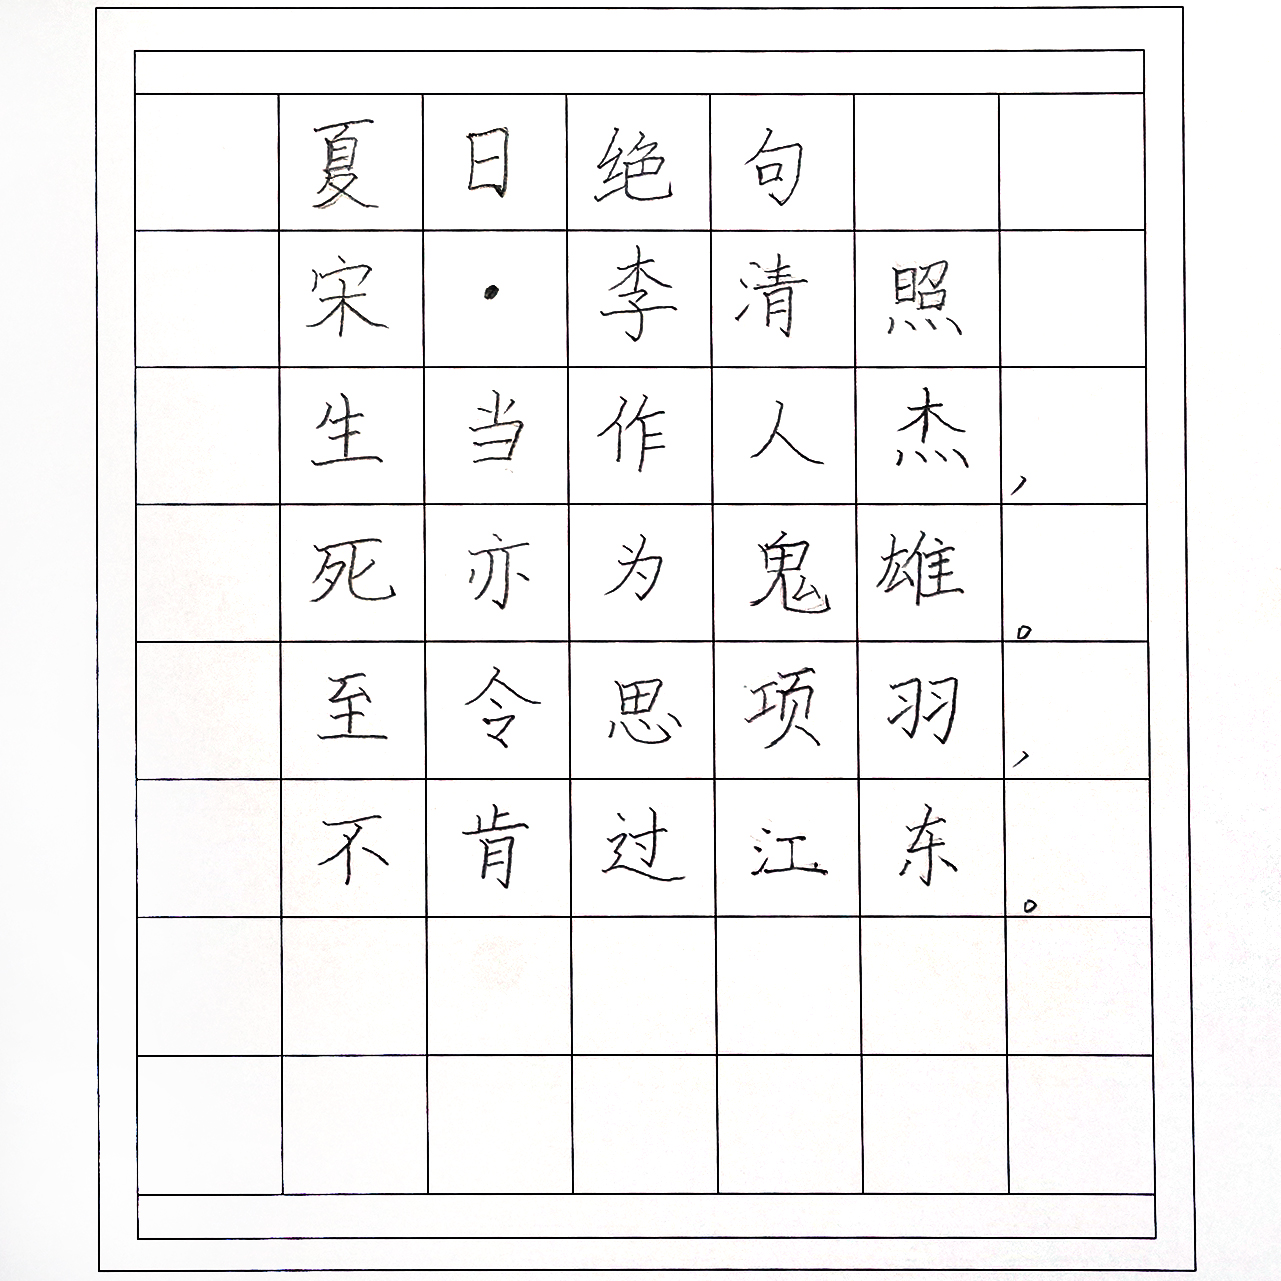 夏日绝句
宋·李清照
生当作人杰，
死亦为鬼雄。
至令思项羽，
不肯过江东。